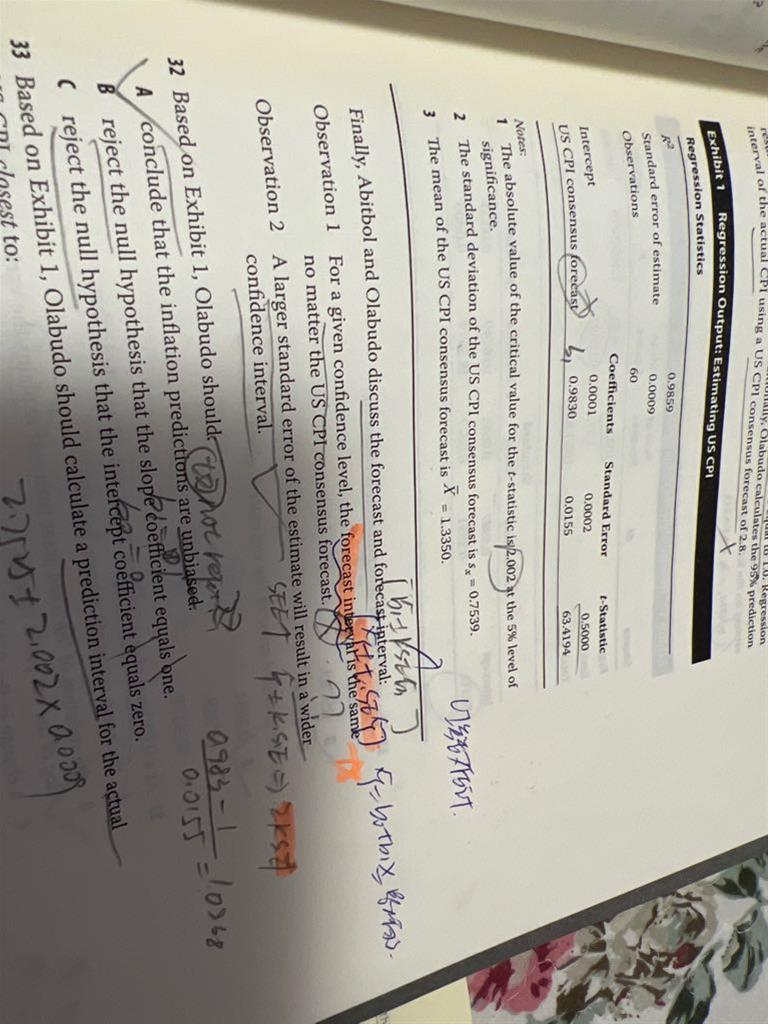 interval of the actual CPI using a US CPI consensus forecast of 2.8.
Exhibit 1 Regression Output: Estimating US CPI
Regression Statistics
R² 0.9859
Standard error of estimate 0.0009
Observations 60
Coefficients Standard Error t-Statistic
Intercept 0.0001 0.0002 0.5000
US CPI consensus forecast b₁ 0.9830 0.0155 63.4194
Notes:
1 The absolute value of the critical value for the t-statistic is 2.002 at the 5% level of
significance.
2 The standard deviation of the US CPI consensus forecast is sₓ = 0.7539.
3 The mean of the US CPI consensus forecast is X̄ = 1.3350.
Finally, Abitbol and Olabudo discuss the forecast and forecast interval:
Observation 1 For a given confidence level, the forecast interval is the same
no matter the US CPI consensus forecast.
Observation 2 A larger standard error of the estimate will result in a wider
confidence interval.
32 Based on Exhibit 1, Olabudo should:
A conclude that the inflation predictions are unbiased.
B reject the null hypothesis that the slope coefficient equals one.
C reject the null hypothesis that the intercept coefficient equals zero.
0.983 - 1
0.0155 = 1.0968
33 Based on Exhibit 1, Olabudo should calculate a prediction interval for the actual
US CPI closest to:
± 2.002 × 0.0009